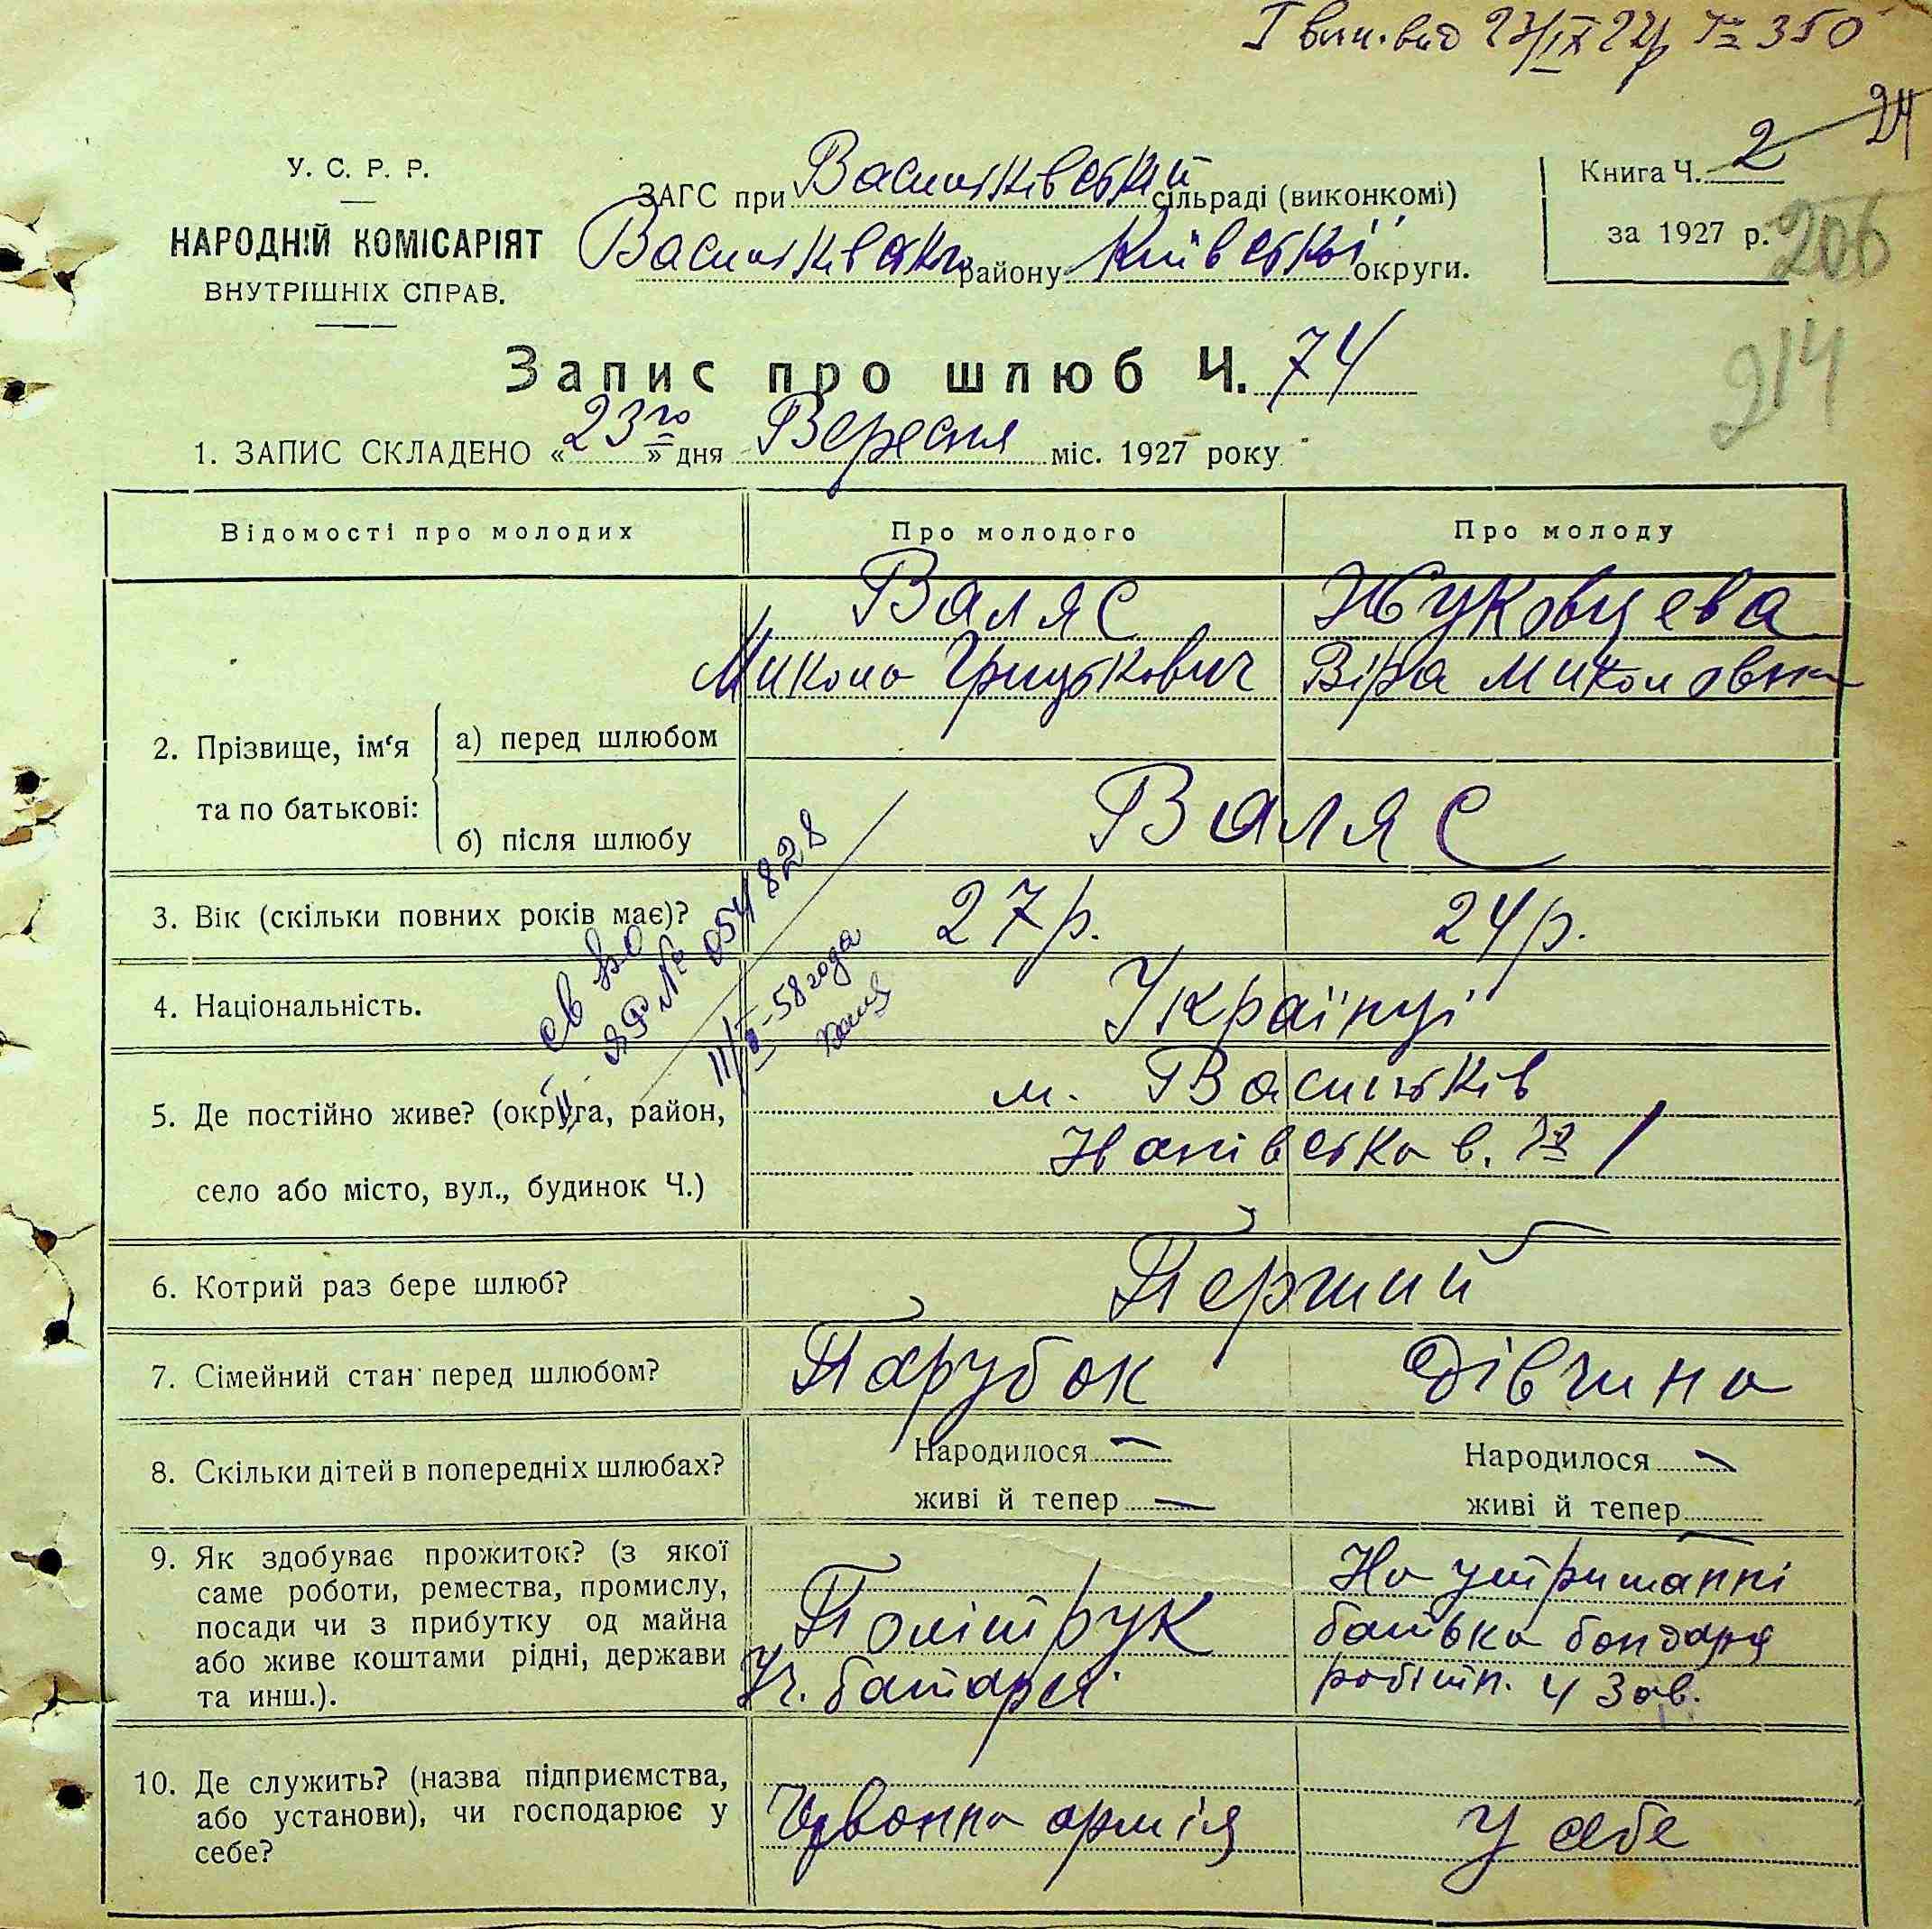 І вип. від 23/IX 27р № 350
24
У. С. Р. Р.
НАРОДНІЙ КОМІСАРІЯТ
ВНУТРІШНІХ СПРАВ.
ЗАГС при Васильківській сільраді (виконкомі)
Васильківськ. району Київської округи.
Книга Ч. 2
за 1927 р.
206
214
Запис про шлюб Ч. 74
1. ЗАПИС СКЛАДЕНО «23го» дня Вересня міс. 1927 року
Відомості про молодих
Про молодого
Про молоду
Валяс
Жуковцева
Микола Грицькович
Віра Миколовна
2. Прізвище, ім‘я та по батькові:
а) перед шлюбом
б) після шлюбу
Валяс
3. Вік (скільки повних років має)?
27 р.
24 р.
4. Національність.
Українці
св во
ЯФ № 054828
11/X-58 года
5. Де постійно живе? (округа, район,
село або місто, вул., будинок Ч.)
м. Васильків
в. № 1
6. Котрий раз бере шлюб?
Перший
7. Сімейний стан перед шлюбом?
Парубок
Дівчина
8. Скільки дітей в попередніх шлюбах?
Народилося —
живі й тепер —
Народилося —
живі й тепер —
9. Як здобуває прожиток? (з якої
саме роботи, ремества, промислу,
посади чи з прибутку од майна
або живе коштами рідні, держави
та инш.).
Політрук
Уч. батареї
На утриманні
батька бондаря
робітн. 4 Зав.
10. Де служить? (назва підприємства,
або установи), чи господарює у
себе?
Червонна армія
У себе